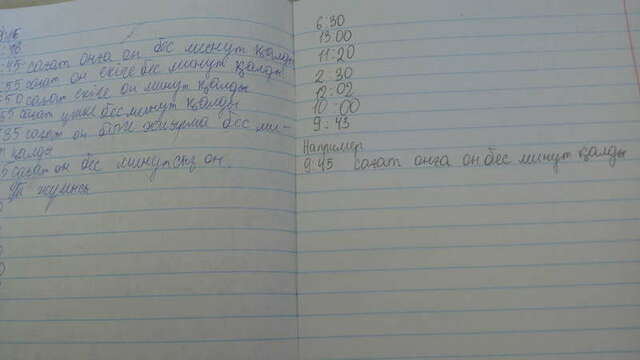 :45 сағат онға он бес минут қалды
:55 сағат он екіге бес минут қалды
:50 сағат екіге он минут қалды
5 сағат үшке бес минут қалды
:35 сағат он бірге жиырма бес ми-
қалды
5 сағат он бес минутсыз он
Үй жұмысы
6:30
13:00
11:20
2:30
12:02
10:00
9:43
Например
9:45 сағат онға он бес минут қалды